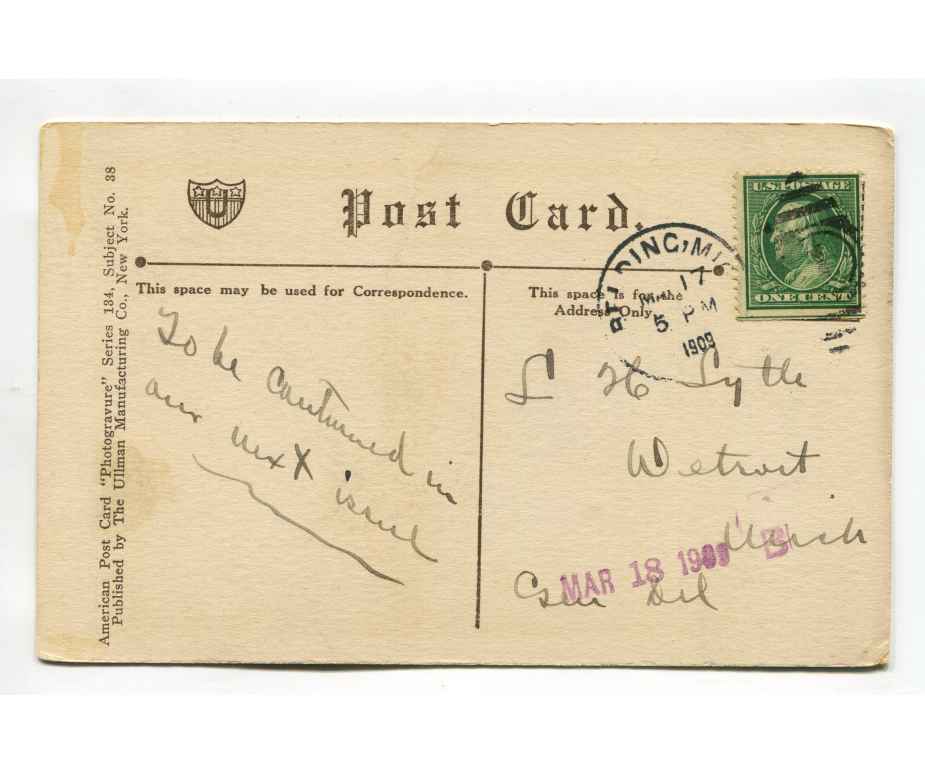 American Post Card "Photogravure" Series 134, Subject No. 38
Published by The Ullman Manufacturing Co., New York.
U
Post Card.
This space may be used for Correspondence.
This space is for the
Address Only.
BELDING, MICH
MAR 17
5 PM
1909
U.S. POSTAGE
ONE CENT
To be continued in
our next issue
L H Lytle
Detroit
Mich
Gen Del
MAR 18 1909